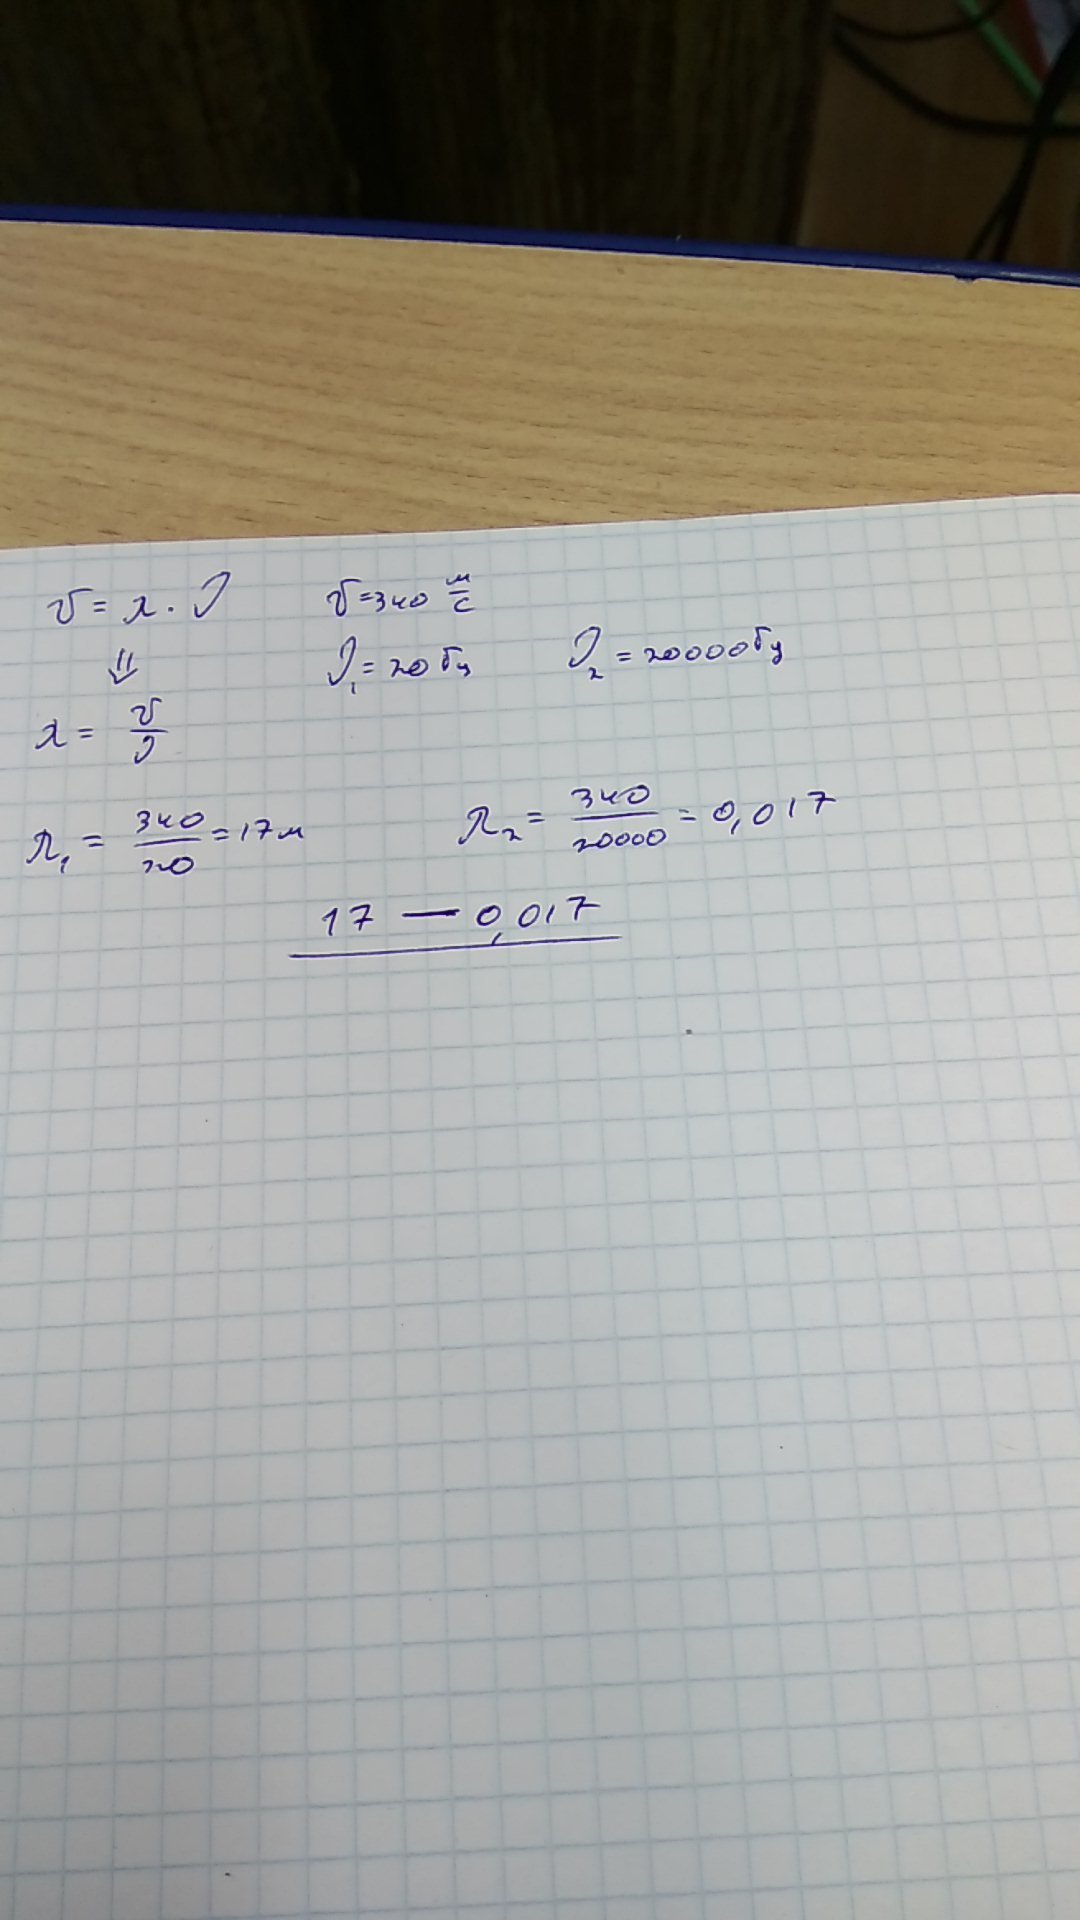 υ = λ · ν υ = 340 м/с
⇓ ν₁ = 20 Гц ν₂ = 20000 Гц
λ = υ/ν
λ₁ = 340/20 = 17 м λ₂ = 340/20000 = 0,017
17 — 0,017